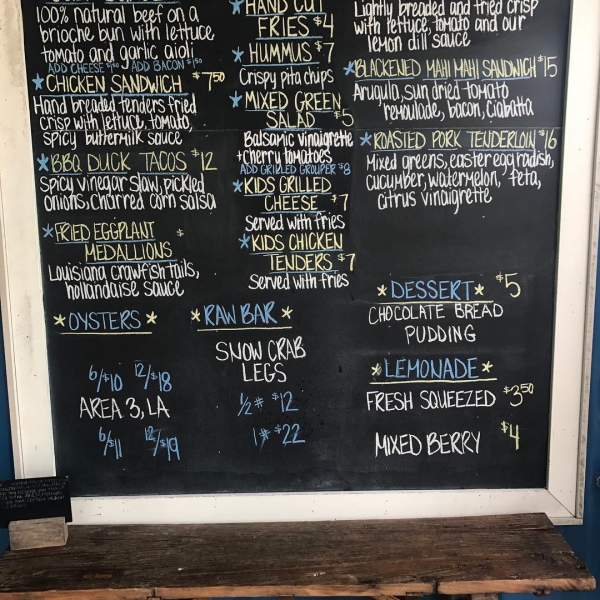 100% natural beef on a
brioche bun with lettuce
tomato and garlic aioli
ADD CHEESE $1.50 ADD BACON $1.50
*CHICKEN SANDWICH $7.50
Hand breaded tenders fried
crisp with lettuce, tomato,
spicy buttermilk sauce
*BBQ DUCK TACOS $12
spicy vinegar slaw, pickled
onions, charred corn salsa
*FRIED EGGPLANT
MEDALLIONS $
Louisiana crawfish tails,
hollandaise sauce
*OYSTERS*
6/$10 12/$18
AREA 3, LA
6/$11 12/$19
*HAND CUT
FRIES $4
*HUMMUS $7
Crispy pita chips
*MIXED GREEN
SALAD $5
Balsamic vinaigrette
+cherry tomatoes
ADD GRILLED GROUPER $8
*KIDS GRILLED
CHEESE $7
Served with fries
*KIDS CHICKEN
TENDERS $7
Served with fries
*RAW BAR*
SNOW CRAB
LEGS
1/2# $12
1# $22
Lightly breaded and fried crisp
with lettuce, tomato and our
lemon dill sauce
*BLACKENED MAHI MAHI SANDWICH $15
Arugula, sun dried tomato
remoulade, bacon, ciabatta
*ROASTED PORK TENDERLOIN $16
Mixed greens, easter egg radish,
cucumber, watermelon, feta,
citrus vinaigrette
*DESSERT* $5
CHOCOLATE BREAD
PUDDING
*LEMONADE*
FRESH SQUEEZED $3.50
MIXED BERRY $4